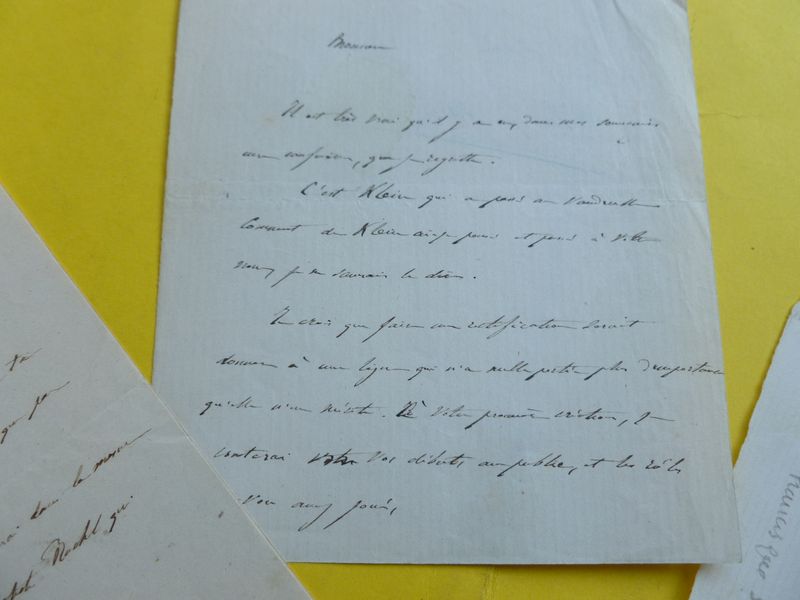 Monsieur
Il est très vrai qu'il y a eu, dans mes souvenirs
une confusion, que je regrette.
C'est Klein qui a passé au Vaudeville
Comment de Klein ai-je pensé et passé à votre
nom, je ne saurais le dire.
Je crois que faire une rectification serait
donner à une ligne qui n'a nulle portée plus d'importance
qu'elle n'en mérite. À votre première création, je
conterai vos débuts au public, et les rôles
Vous avez joués,
dans la même
Rachel qui